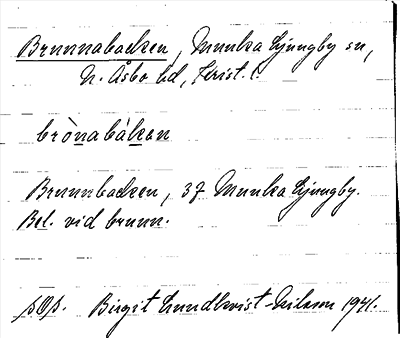 Brunnabacken, Munka Ljungby sn,
N. Åsbo hd, Krist. l.
brònabákan
Brunnbacken, 37 Munka Ljungby.
Bel. vid brunn.
pOp. Birgit Lundkvist-Nilsson 1941.